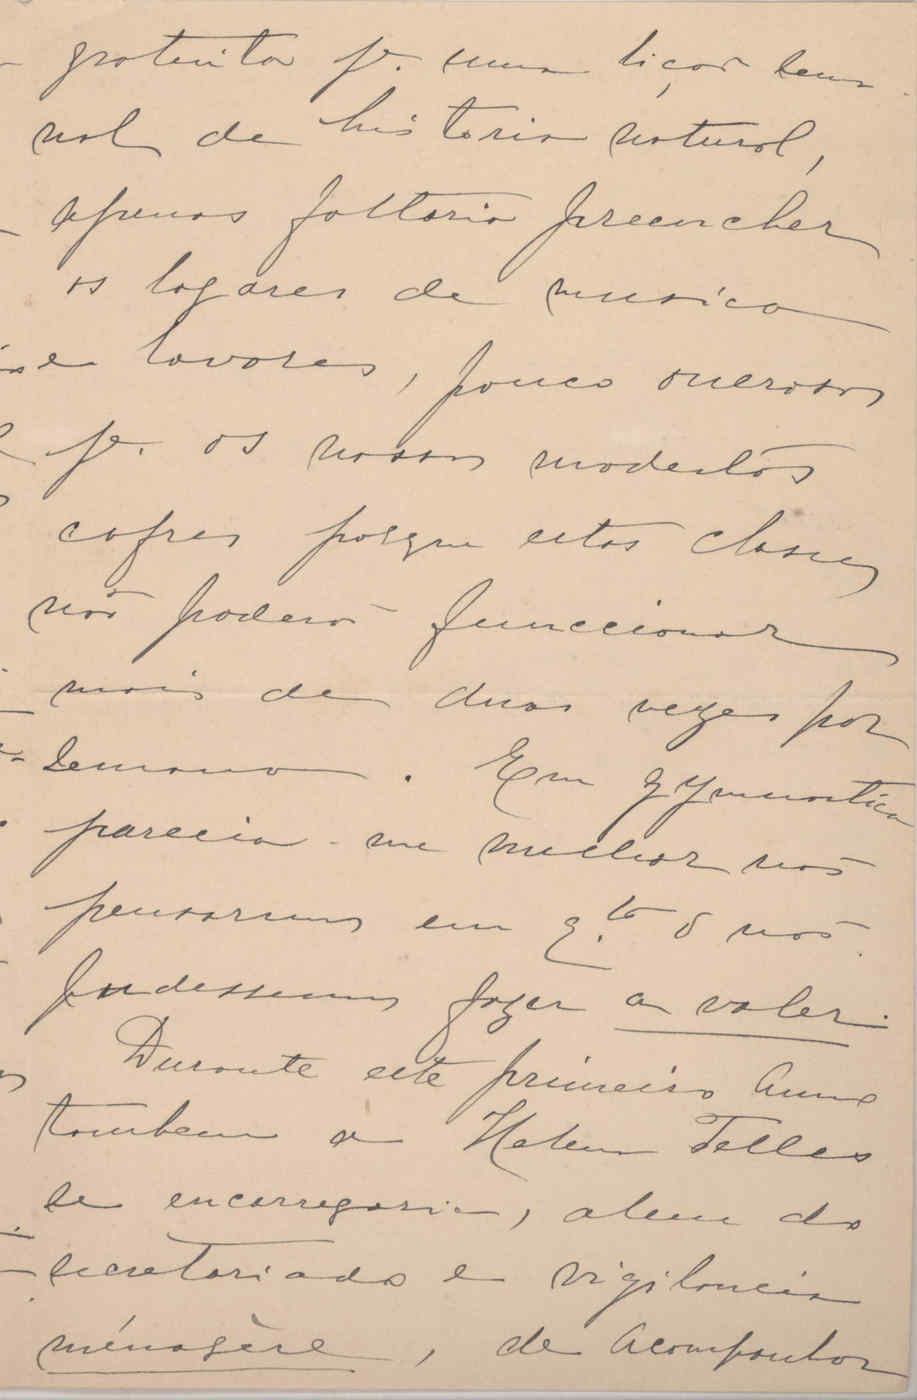 gratuita p. uma lição sema
nal de historia natural,
apenas faltaria preencher
os logares de musica
e lavores, pouco onerosos
p. os nossos modestos
cofres porque estas classes
não poderão funccionar
mais de duas vezes por
semana. Em gymnastica
parecia-me melhor não
pensarmos em q.to o não
podessemos fazer a valer.
Durante este primeiro anno
tambem a Helena Telles
se encarregaria, alem do
secretariado e vigilancia
ménagère, de acompanhar